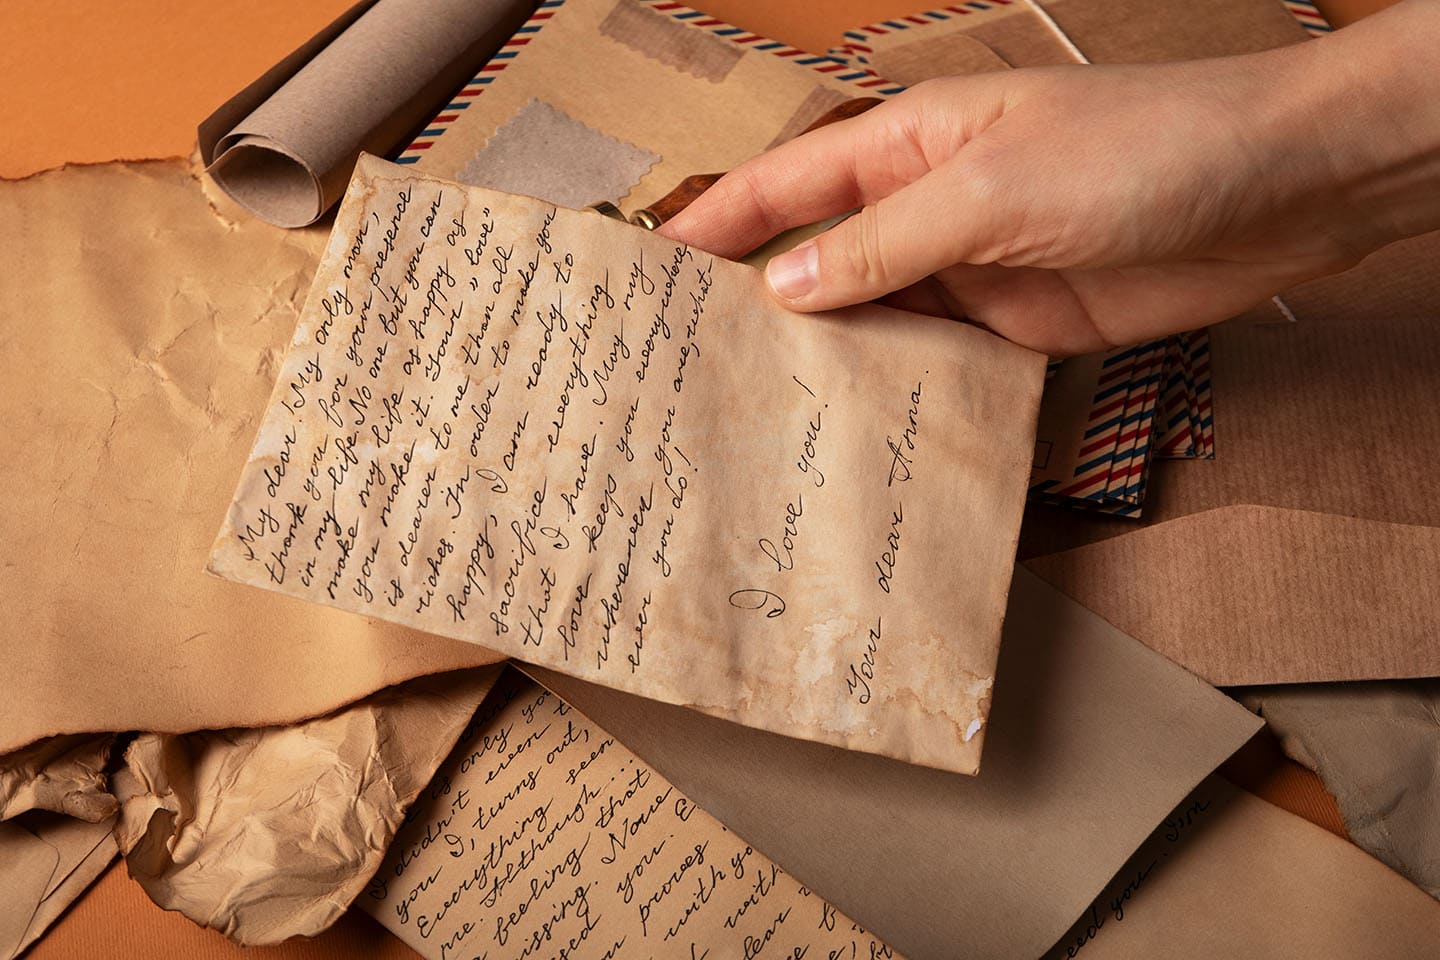 My dear! My only man,
thank you for your presence
in my life. No one but you can
make my life as happy as
you make it. Your „love”
is dearer to me than all
riches. In order to make you
happy, I am ready to
sacrifice everything
that I have. May my
love keeps you everywhere,
wherever you are, what-
ever you do!
I love you!
Your dear Anna.
is only
didn't even
you I, turns out,
Everything seen
me. Although...
feeling that
issing. None
you. E
you proves
with yo
with
lear
eed you. I'm